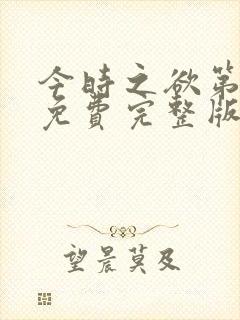 今時之欲第
免費完整版
望晨莫及